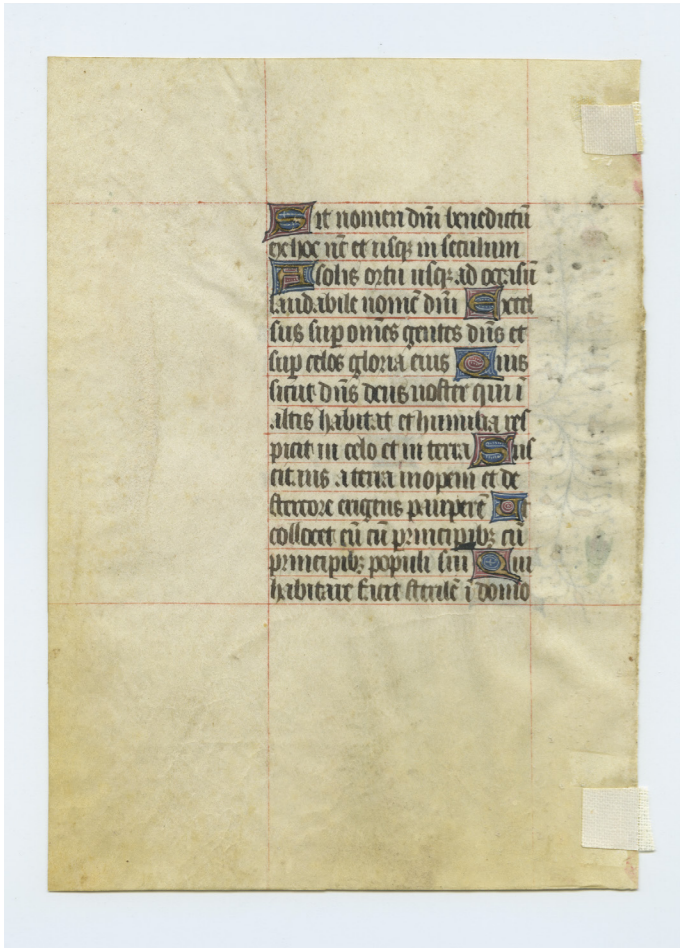 Sit nomen dñi benedictũ
ex hoc nc̃ et usqꝫ in seculum
A solis ortu usqꝫ ad occasũ
laudabile nomẽ dñi Excel
sus sup om̃es gentes dñs et
sup celos gloria eius Quis
sicut dñs deus noster qui ĩ
altis habitat et humilia res
picit in celo et in terra Sus
citans a terra inopem et de
stercore erigens pauperẽ Ut
collocet eũ cũ principibꝫ cũ
principibꝫ populi sui Qui
habitare facit sterilẽ ĩ domo